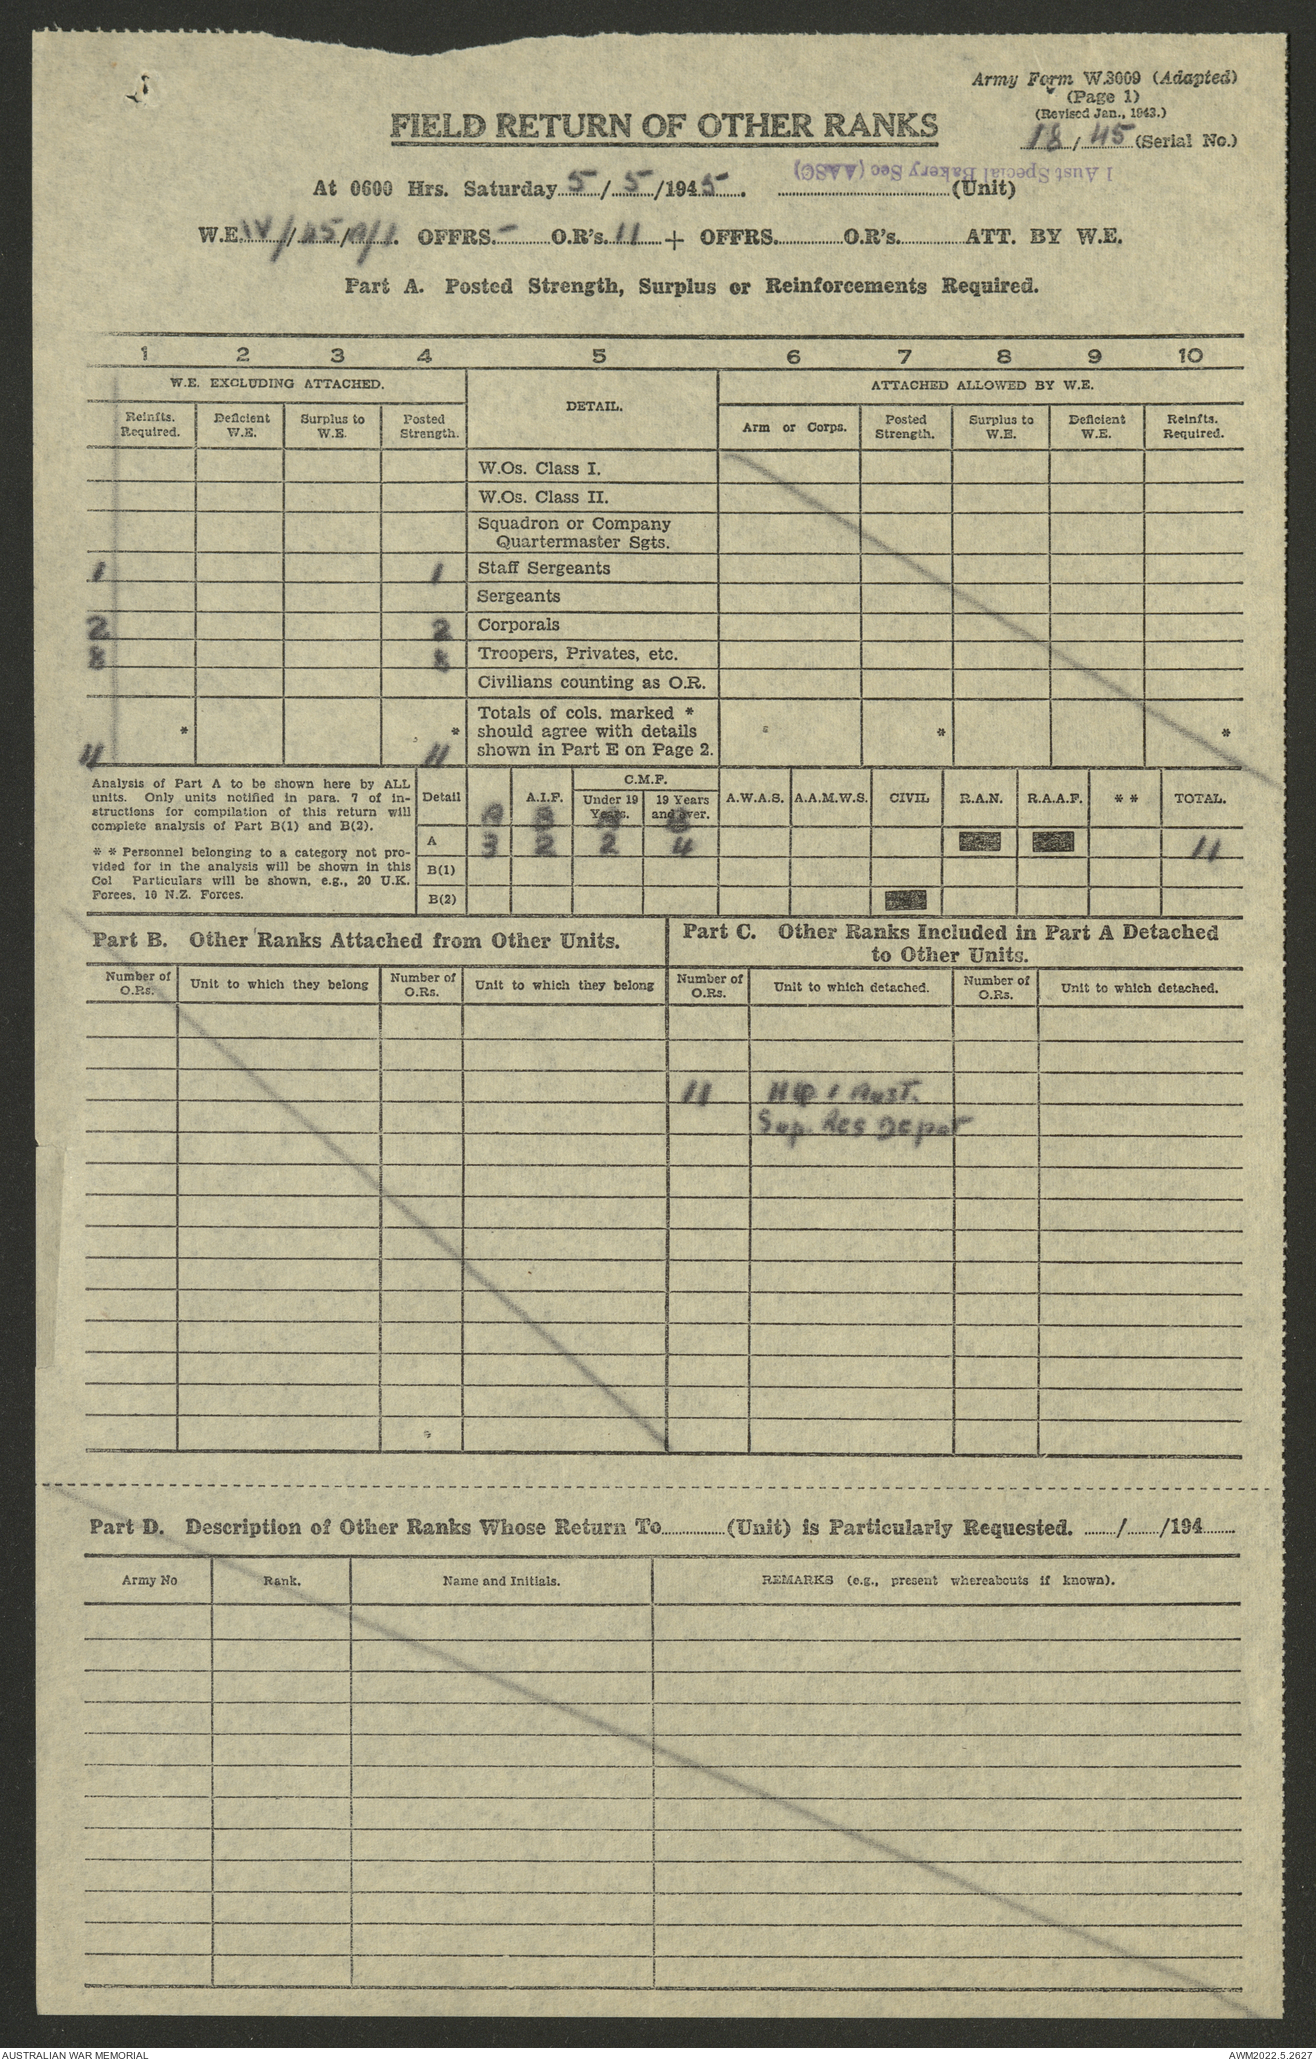 Army Form W.3009 (Adapted)
(Page 1)
(Revised Jan., 1943.)
18/45 (Serial No.)
FIELD RETURN OF OTHER RANKS
1 Aust Special Bakery Sec (AASC)
At 0600 Hrs. Saturday 5/5/1945. (Unit)
W.E. OFFRS. - O.R's. 11 + OFFRS. O.R's. ATT. BY W.E.
Part A. Posted Strength, Surplus or Reinforcements Required.
1 2 3 4 5 6 7 8 9 10
W.E. EXCLUDING ATTACHED. DETAIL. ATTACHED ALLOWED BY W.E.
Reinfts. Required. Deficient W.E. Surplus to W.E. Posted Strength. Arm or Corps. Posted Strength. Surplus to W.E. Deficient W.E. Reinfts. Required.
W.Os. Class I.
W.Os. Class II.
Squadron or Company
Quartermaster Sgts.
1 1 Staff Sergeants
Sergeants
2 2 Corporals
8 8 Troopers, Privates, etc.
Civilians counting as O.R.
Totals of cols. marked *
* * should agree with details * *
11 11 shown in Part E on Page 2.
Analysis of Part A to be shown here by ALL
units. Only units notified in para. 7 of in-
structions for compilation of this return will
complete analysis of Part B(1) and B(2).
* * Personnel belonging to a category not pro-
vided for in the analysis will be shown in this
Col Particulars will be shown, e.g., 20 U.K.
Forces, 10 N.Z. Forces.
C.M.F.
Detail A.I.F. Under 19 Years. 19 Years and over. A.W.A.S. A.A.M.W.S. CIVIL R.A.N. R.A.A.F. * * TOTAL.
A B A B
A 3 2 2 4 11
B(1)
B(2)
Part B. Other Ranks Attached from Other Units.
Part C. Other Ranks Included in Part A Detached
to Other Units.
Number of O.Rs. Unit to which they belong Number of O.Rs. Unit to which they belong Number of O.Rs. Unit to which detached. Number of O.Rs. Unit to which detached.
11 HQ 1 Aust.
Sup. Res Depot
Part D. Description of Other Ranks Whose Return To (Unit) is Particularly Requested. / /194
Army No Rank. Name and Initials. REMARKS (e.g., present whereabouts if known).
AUSTRALIAN WAR MEMORIAL
AWM2022.5.2627